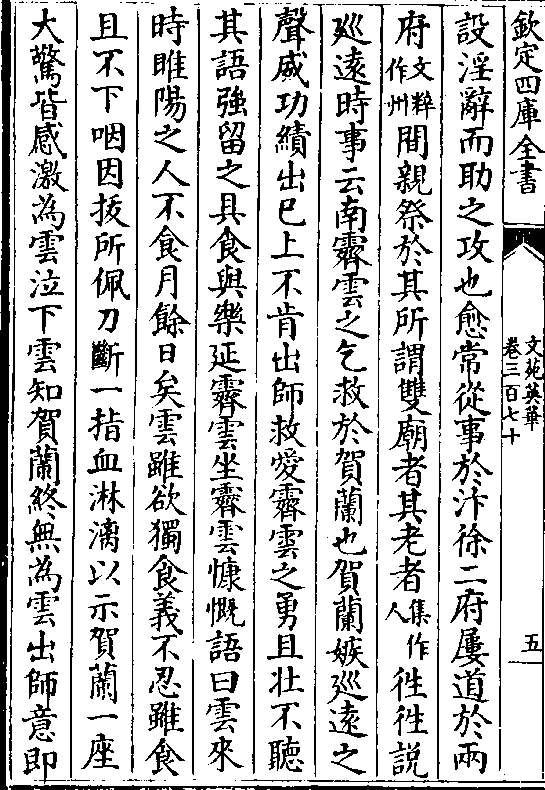 欽定四庫全書
文苑英華
卷三百七十
五
設淫辭而助之攻也愈常從事於汴徐二府屢道於兩
府文粹作州間親祭於其所謂雙廟者其老者集作人徃徃説
廵逺時事云南霽雲之乞救於賀蘭也賀蘭嫉廵逺之
聲威功績出已上不肯出師救愛霽雲之勇且壯不聽
其語強留之具食與樂延霽雲坐霽雲慷慨語曰雲來
時睢陽之人不食月餘日矣雲雖欲獨食義不忍雖食
且不下咽因抜所佩刀斷一指血淋漓以示賀蘭一座
大驚皆感激為雲泣下雲知賀蘭終無為雲出師意即